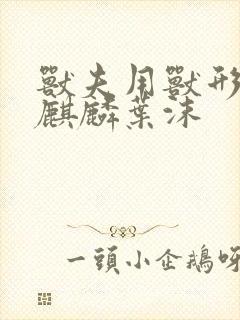 獸夫用獸形
麒麟葉沫
一頭小企鵝呀